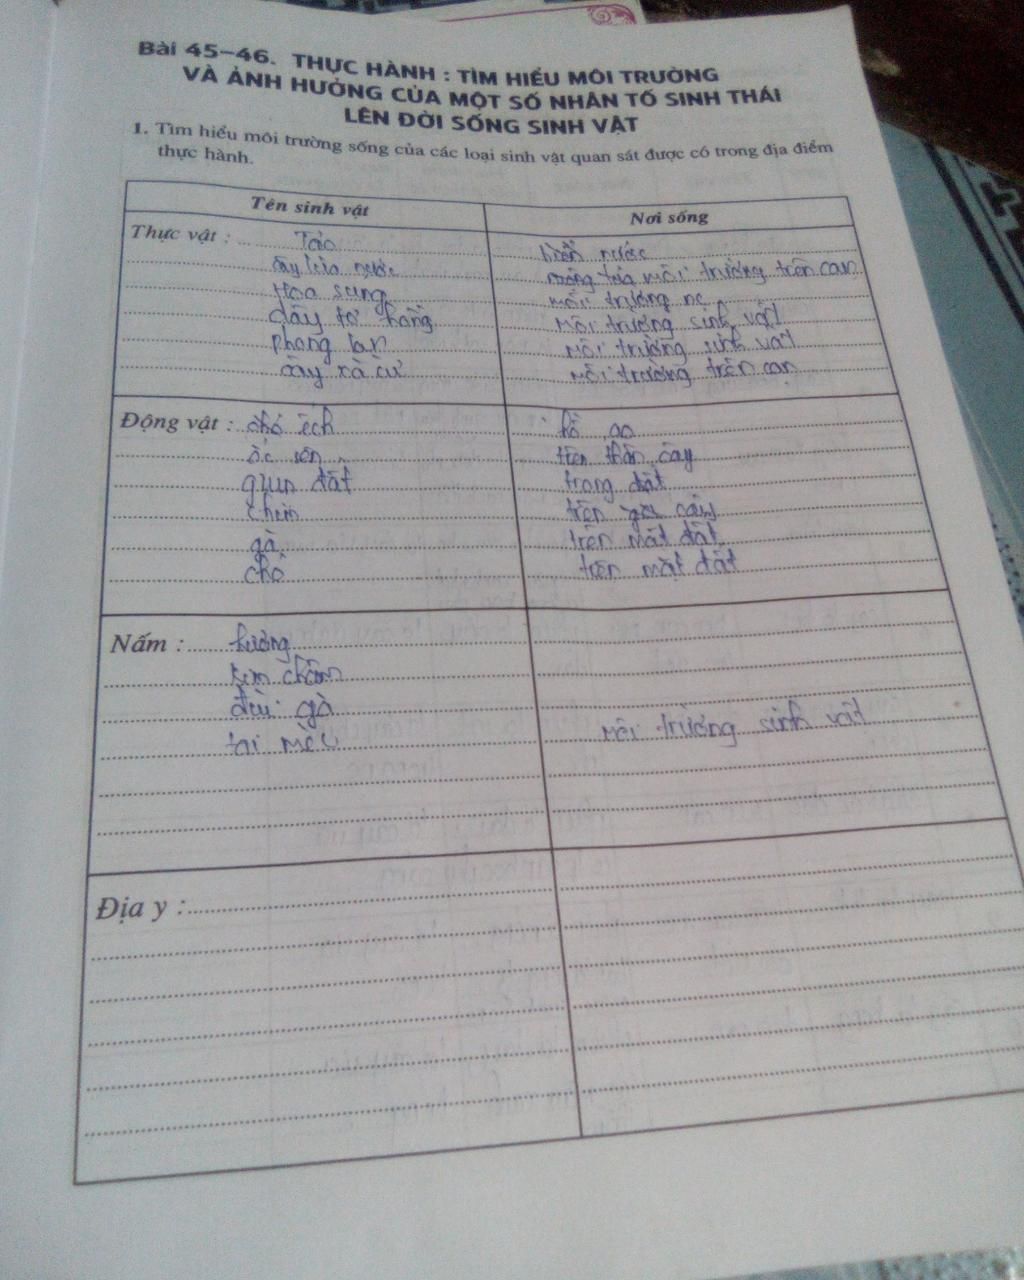 Bài 45–46. THỰC HÀNH : TÌM HIỂU MÔI TRƯỜNG
VÀ ẢNH HƯỞNG CỦA MỘT SỐ NHÂN TỐ SINH THÁI
LÊN ĐỜI SỐNG SINH VẬT
1. Tìm hiểu môi trường sống của các loại sinh vật quan sát được có trong địa điểm
thực hành.
Tên sinh vật Nơi sống
Thực vật : Tảo nước
cây lúa nước môi trường trên cạn
Hoa súng môi trường nc
dây tơ hồng môi trường sinh vật
phong lan môi trường sinh vật
cây xà cừ môi trường trên cạn
Động vật : ếch hồ ao
ốc sên trên thân cây
giun đất trong đất
chim trên cây
gà trên mặt đất
chó trên mặt đất
Nấm : hương
kim châm
đùi gà
tai mèo môi trường sinh vật
Địa y :